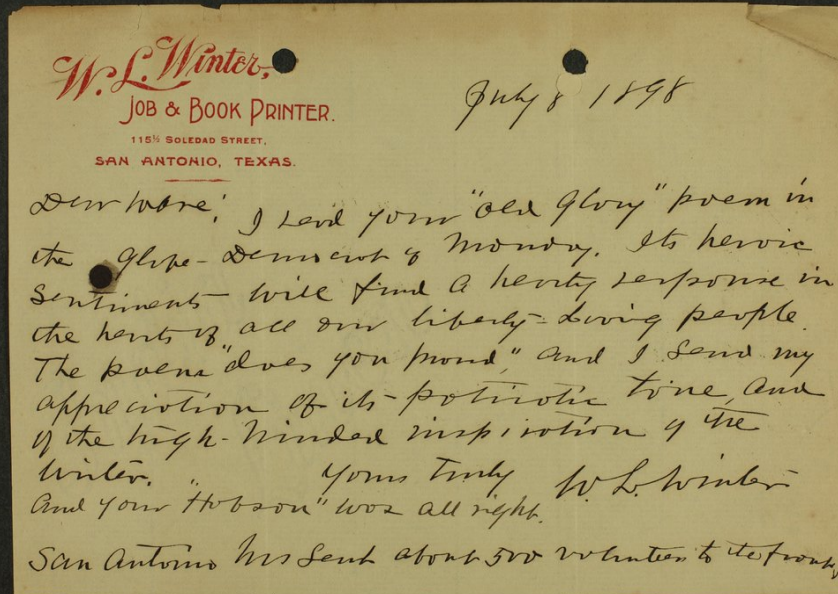 W. L. Winter,
JOB & BOOK PRINTER.
115½ SOLEDAD STREET,
SAN ANTONIO, TEXAS.
July 8 1898
Dear Ware: I read your "old Glory" poem in
the Globe-Democrat of Monday. Its heroic
sentiments will find a hearty response in
the hearts of all our liberty-loving people.
The poem "does you proud," and I send my
appreciation of its patriotic tone, and
of the high-minded inspiration of the
writer. Yours truly W. L. Winter
And your "Hobson" was all right.
San Antonio has sent about 500 volunteers to the front.